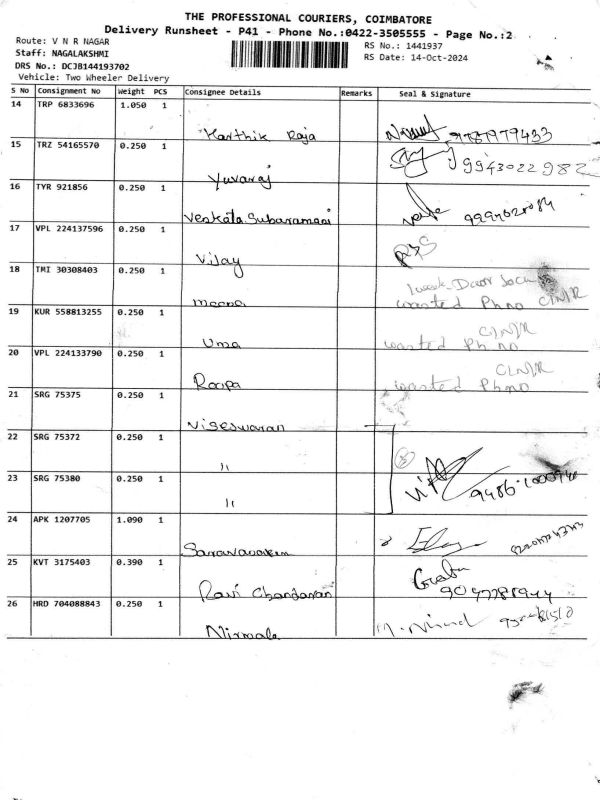 THE PROFESSIONAL COURIERS, COIMBATORE
Delivery Runsheet - P41 - Phone No.:0422-3505555 - Page No.:2
Route: V N R NAGAR
RS No.: 1441937
Staff: NAGALAKSHMI
RS Date: 14-Oct-2024
DRS No.: DCJB144193702
Vehicle: Two Wheeler Delivery
S No Consignment No Weight PCS Consignee Details Remarks Seal & Signature
14 TRP 6833696 1.050 1
Karthik Raja 9787979433
15 TRZ 54165570 0.250 1
Yuvaraj 9943022982
16 TYR 921856 0.250 1
Venkata Subaramani
17 VPL 224137596 0.250 1
Vijay
18 TMI 30308403 0.250 1
meena wanted Ph no
19 KUR 558813255 0.250 1
Uma wanted Ph no
20 VPL 224133790 0.250 1
Roopa wanted Ph no
21 SRG 75375 0.250 1
Viseswaran
22 SRG 75372 0.250 1
"
23 SRG 75380 0.250 1
"
24 APK 1207705 1.090 1
Saravanakum
25 KVT 3175403 0.390 1
Ravi Chandaran
26 HRD 704088843 0.250 1
Nirmala